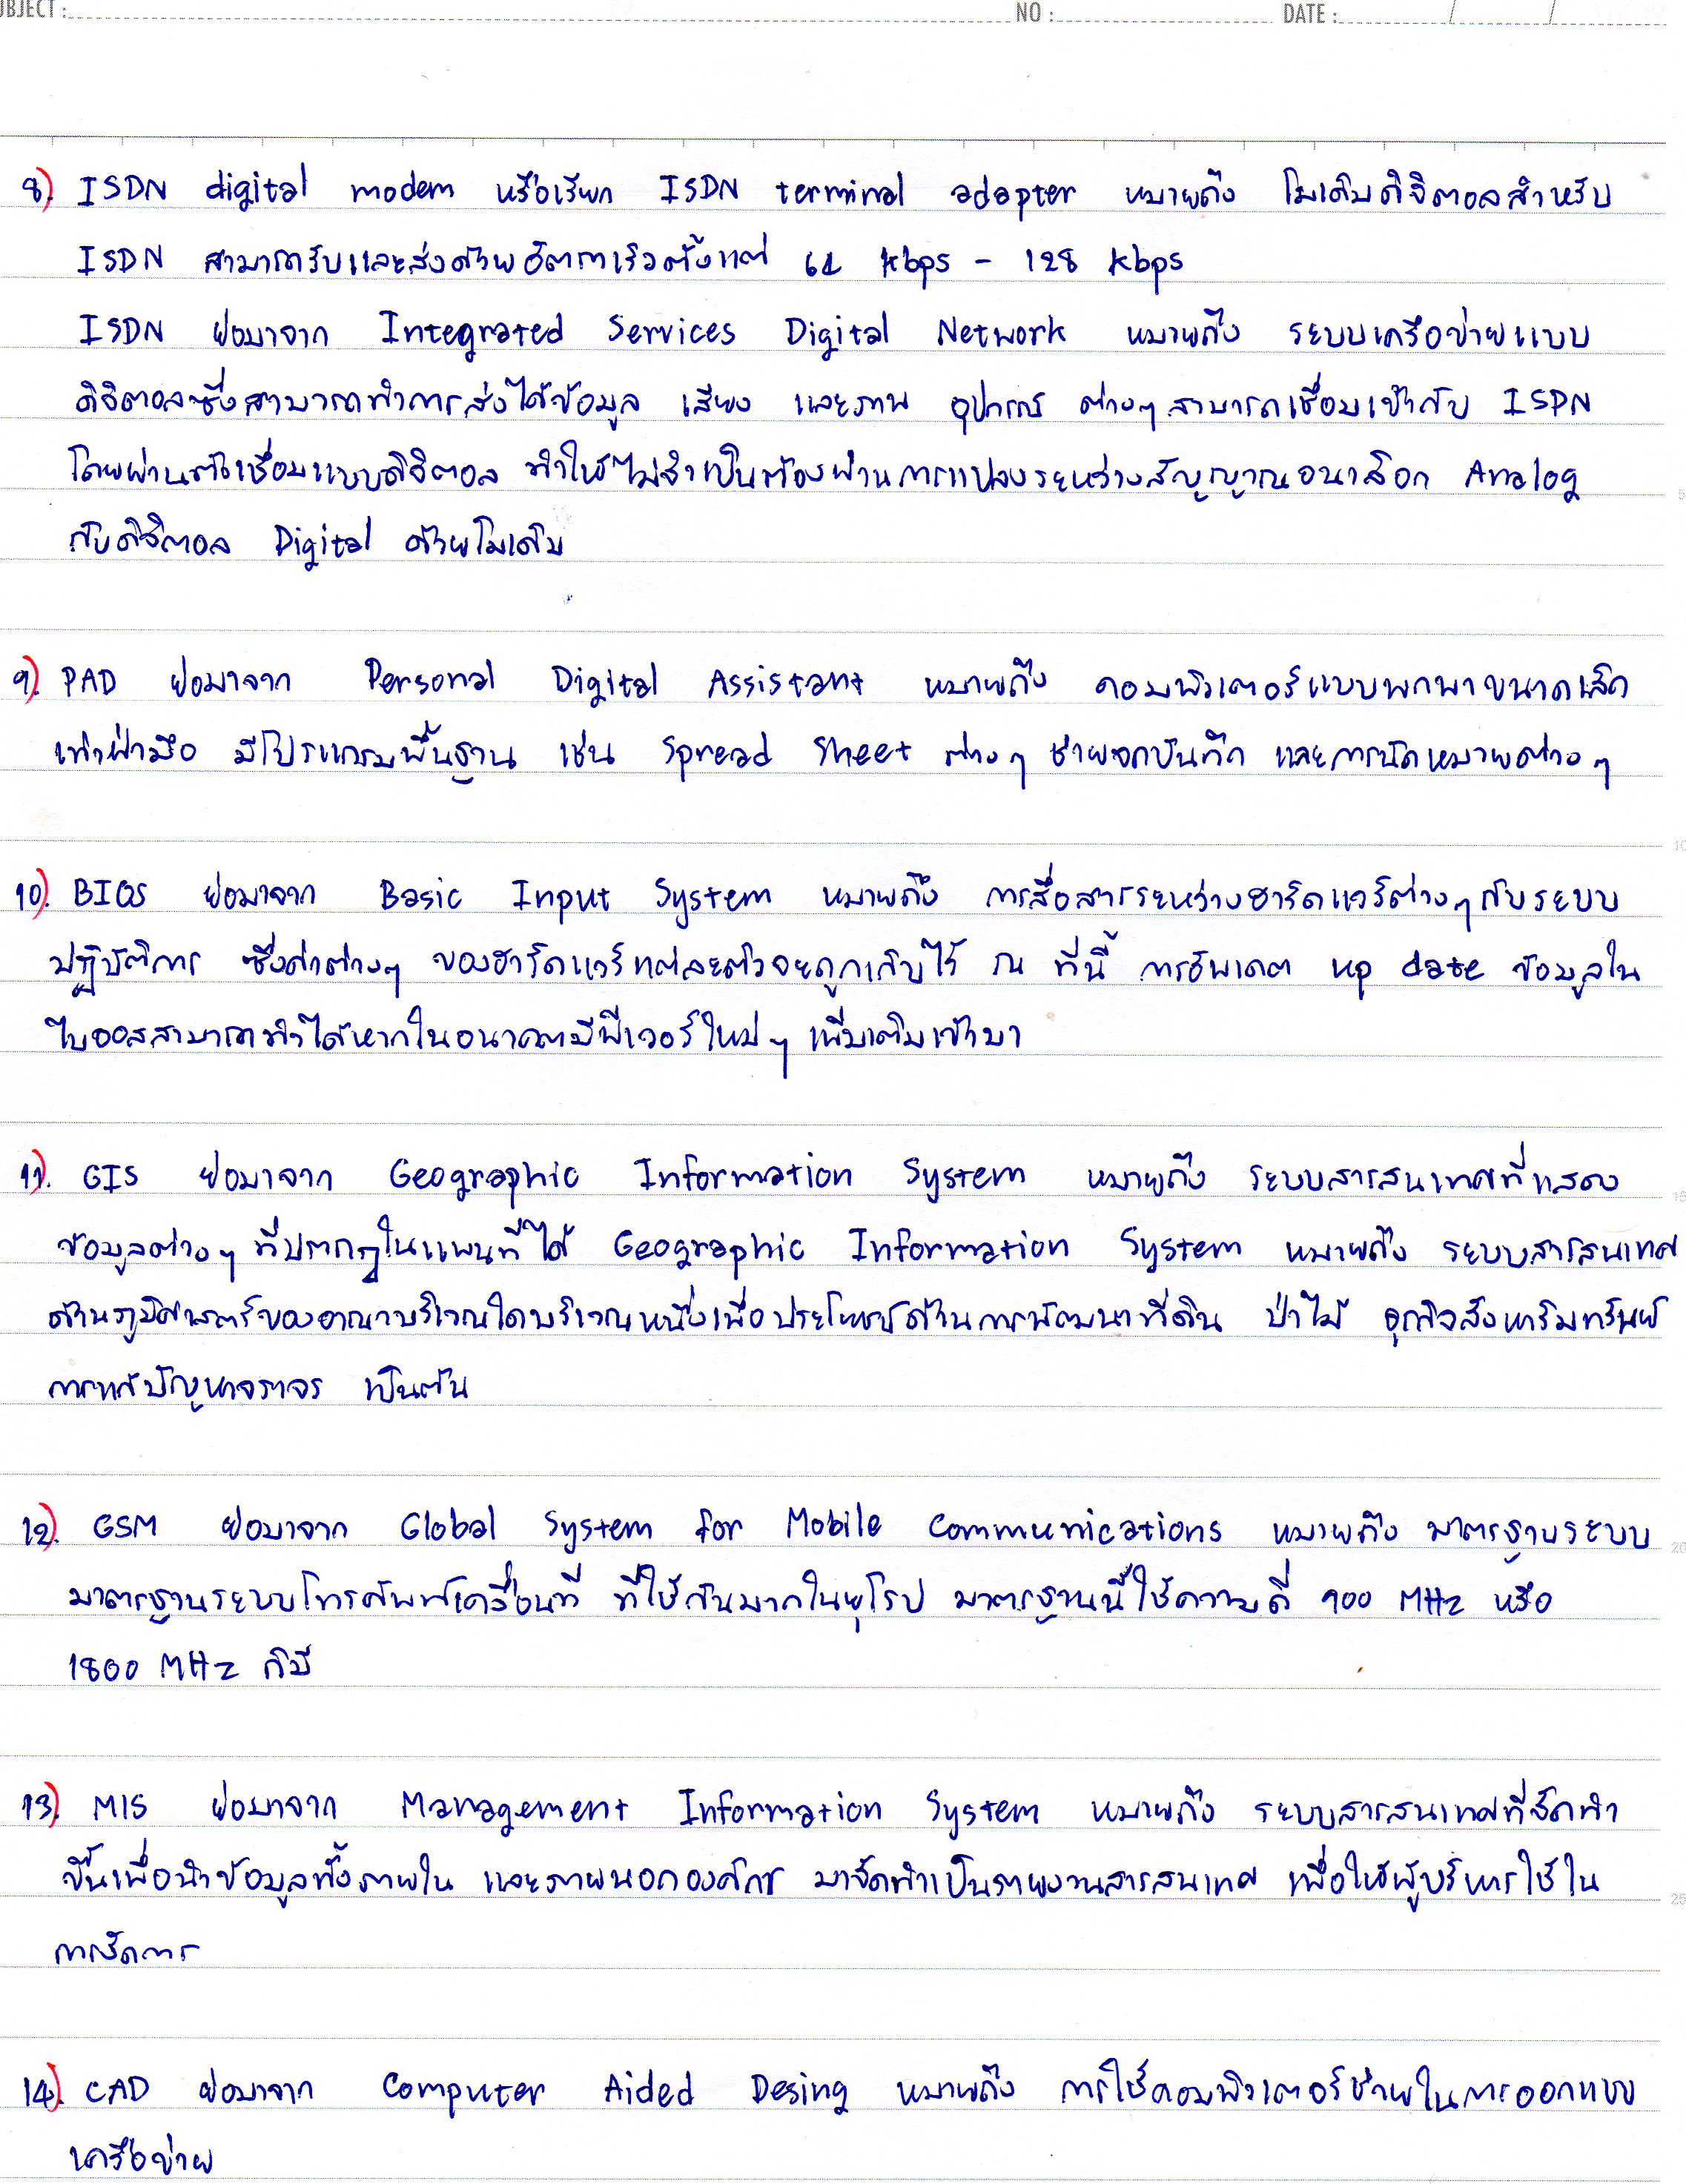 UBJECT : NO : DATE : / /
8). ISDN digital modem หรือเรียก ISDN terminal adapter หมายถึง โมเด็มดิจิตอลสำหรับ
ISDN สามารถรับและส่งด้วยอัตราเร็วตั้งแต่ 64 kbps - 128 kbps
ISDN ย่อมาจาก Integrated Services Digital Network หมายถึง ระบบเครือข่ายแบบ
ดิจิตอลซึ่งสามารถทำการส่งได้ข้อมูล เสียง และภาพ อุปกรณ์ ต่างๆสามารถเชื่อมเข้ากับ ISDN
โดยผ่านตัวเชื่อมแบบดิจิตอล ทำให้ไม่จำเป็นต้องผ่านการแปลงระหว่างสัญญาณอนาล็อก Analog
5
กับดิจิตอล Digital ด้วยโมเด็ม
9). PAD ย่อมาจาก Personal Digital Assistant หมายถึง คอมพิวเตอร์แบบพกพาขนาดเล็ก
เท่าฝ่ามือ มีโปรแกรมพื้นฐาน เช่น Spread Sheet ต่างๆ ช่วยจดบันทึก และการนัดหมายต่างๆ
10
10). BIOS ย่อมาจาก Basic Input System หมายถึง การสื่อสารระหว่างฮาร์ดแวร์ต่างๆกับระบบ
ปฏิบัติการ ซึ่งค่าต่างๆ ของฮาร์ดแวร์แต่ละตัวจะถูกเก็บไว้ ณ ที่นี้ การอัพเดต up date ข้อมูลใน
ไบออสสามารถทำได้หากในอนาคตมีฟีเจอร์ใหม่ๆ เพิ่มเติมเข้ามา
11). GIS ย่อมาจาก Geographic Information System หมายถึง ระบบสารสนเทศที่แสดง
15
ข้อมูลต่างๆ ที่ปรากฏในแผนที่ได้ Geographic Information System หมายถึง ระบบสารสนเทศ
ด้านภูมิศาสตร์ของอาณาบริเวณใดบริเวณหนึ่งเพื่อประโยชน์ด้านการพัฒนาที่ดิน ป่าไม้ ธุรกิจอสังหาริมทรัพย์
การแก้ปัญหาจราจร เป็นต้น
12). GSM ย่อมาจาก Global System for Mobile Communications หมายถึง มาตรฐานระบบ
20
มาตรฐานระบบโทรศัพท์เคลื่อนที่ ที่ใช้กันมากในยุโรป มาตรฐานนี้ใช้ความถี่ 900 MHz หรือ
1800 MHz ก็มี
13). MIS ย่อมาจาก Management Information System หมายถึง ระบบสารสนเทศที่จัดทำ
ขึ้นเพื่อนำข้อมูลทั้งภายใน และภายนอกองค์กร มาจัดทำเป็นรายงานสารสนเทศ เพื่อให้ผู้บริหารใช้ใน
25
การจัดการ
14). CAD ย่อมาจาก Computer Aided Desing หมายถึง การใช้คอมพิวเตอร์ช่วยในการออกแบบ
เครือข่าย